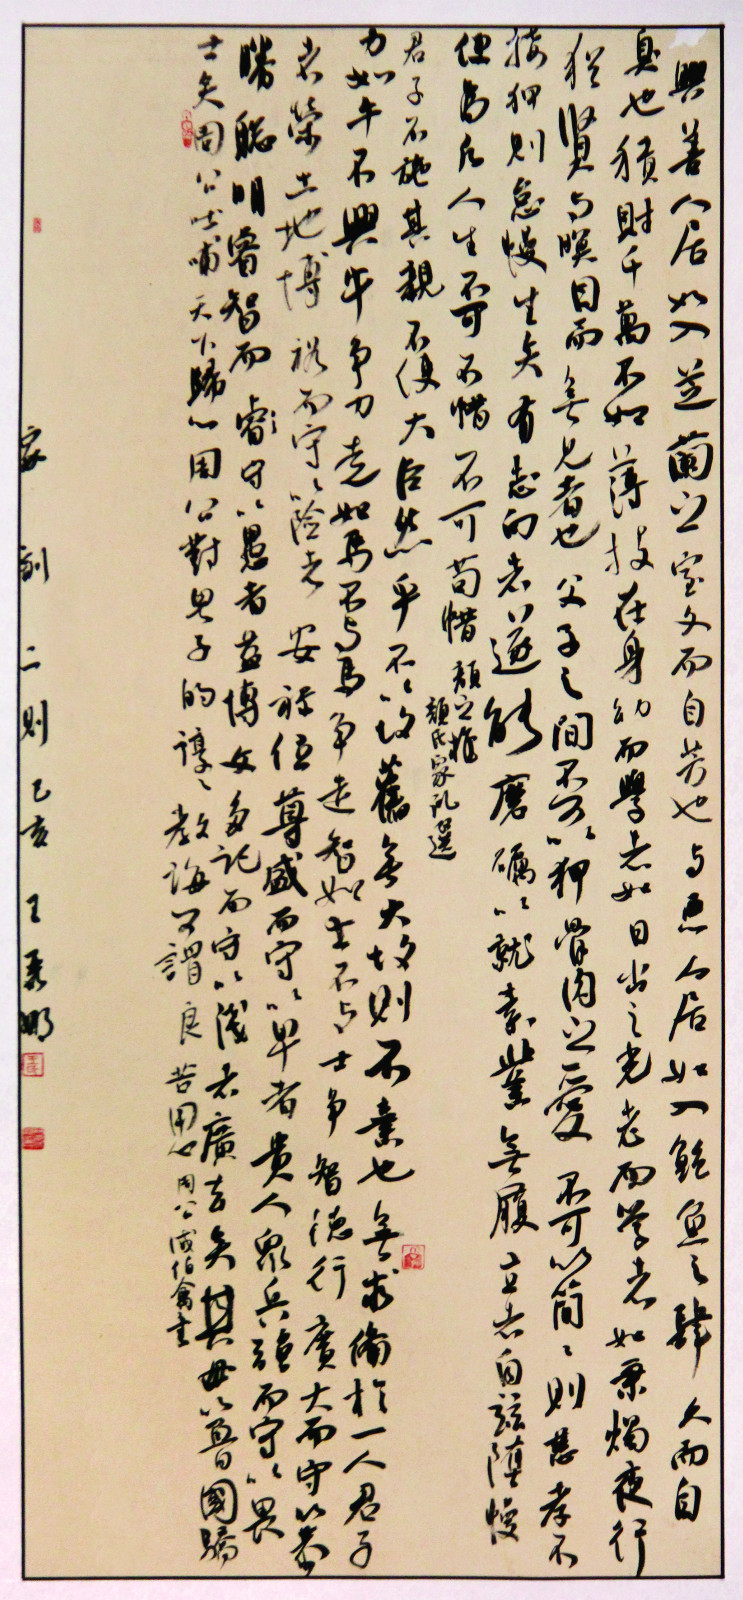 與善人居如入芝蘭之室久而自芳也与惡人居如入鮑魚之肆久而自
臭也積財千萬不如薄技在身幼而學者如日出之光老而学者如秉燭夜行
猶賢与瞑目而無見者也父子之間不可以狎骨肉之愛不可以簡簡則慈孝不
接狎則怠慢生矣有志向者遂能磨礪以就素業無履立者自兹墮慢
便為凡人生不可不惜不可苟惜顔之推
顔氏家訓選
君子不施其親不使大臣怨乎不以故舊無大故則不棄也無求備於一人君子
力如牛不與牛争力走如馬不与馬争走智如士不与士争智德行廣大而守以恭
者榮土地博裕而守以險者安禄位尊盛而守以卑者貴人衆兵强而守以畏
者勝聪明睿智而守以愚者益博文多記而守以淺者廣去矣其毋以魯國驕
士矣周公吐哺天下歸心周公對兒子的諄諄教誨可謂良苦用心周公诫伯禽書
家訓二則己亥王